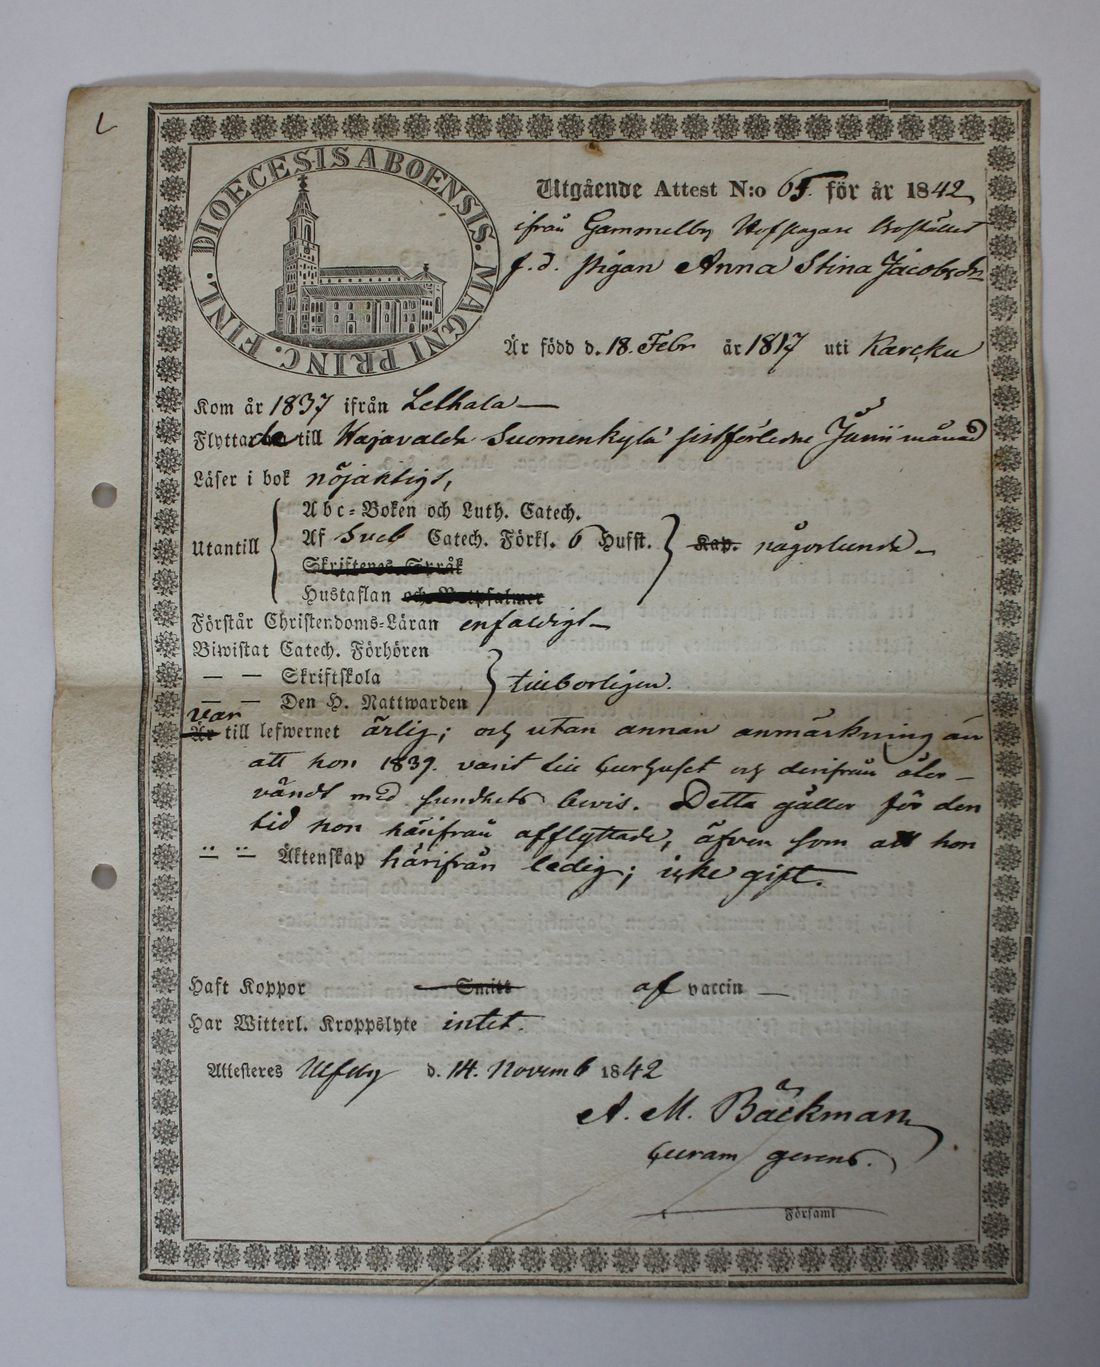 L
DIOECESIS ABOENSIS. MAGNI PRINC. FINL.
Utgående Attest N:o 65. för år 1842
ifrån Gammelby Bostället
f. d. pigan Anna Stina Jacobsdr
Är född d. 18. Febr. år 1817 uti Karcku
Kom år 1837 ifrån Lelhala —
Flyttade till Hajavalda Suomenkylä sistförledne Junii månad
Läser i bok nöjaktigt,
Utantill
Abc-Boken och Luth. Catech.
Af Sveb Catech. Förkl. 6 Hufst. Kap. någorlunda —
Skriftenes Språk
Hustaflan och Botpsalmer
Förstår Christendoms-Läran enfaldigt —
Biwistat Catech. Förhören
— — Skriftskola tillbörligen.
— — Den H. Nattwarden
var
Är till lefwernet ärlig; och utan annan anmärkning än
att hon 1839. varit till Curhuset och derifrån åter-
vändt med sundhets bevis. Detta gäller för den
tid hon härifrån afflyttade, äfven som att hon
— — Äktenskap härifrån ledig; icke gift.
Haft Koppor Smitt af vaccin —
Har Witterl. Kroppslyte intet.
Attesteres Ulfsby d. 14. Novemb 1842
A. M. Bäckman
Curam gerens.
Församl